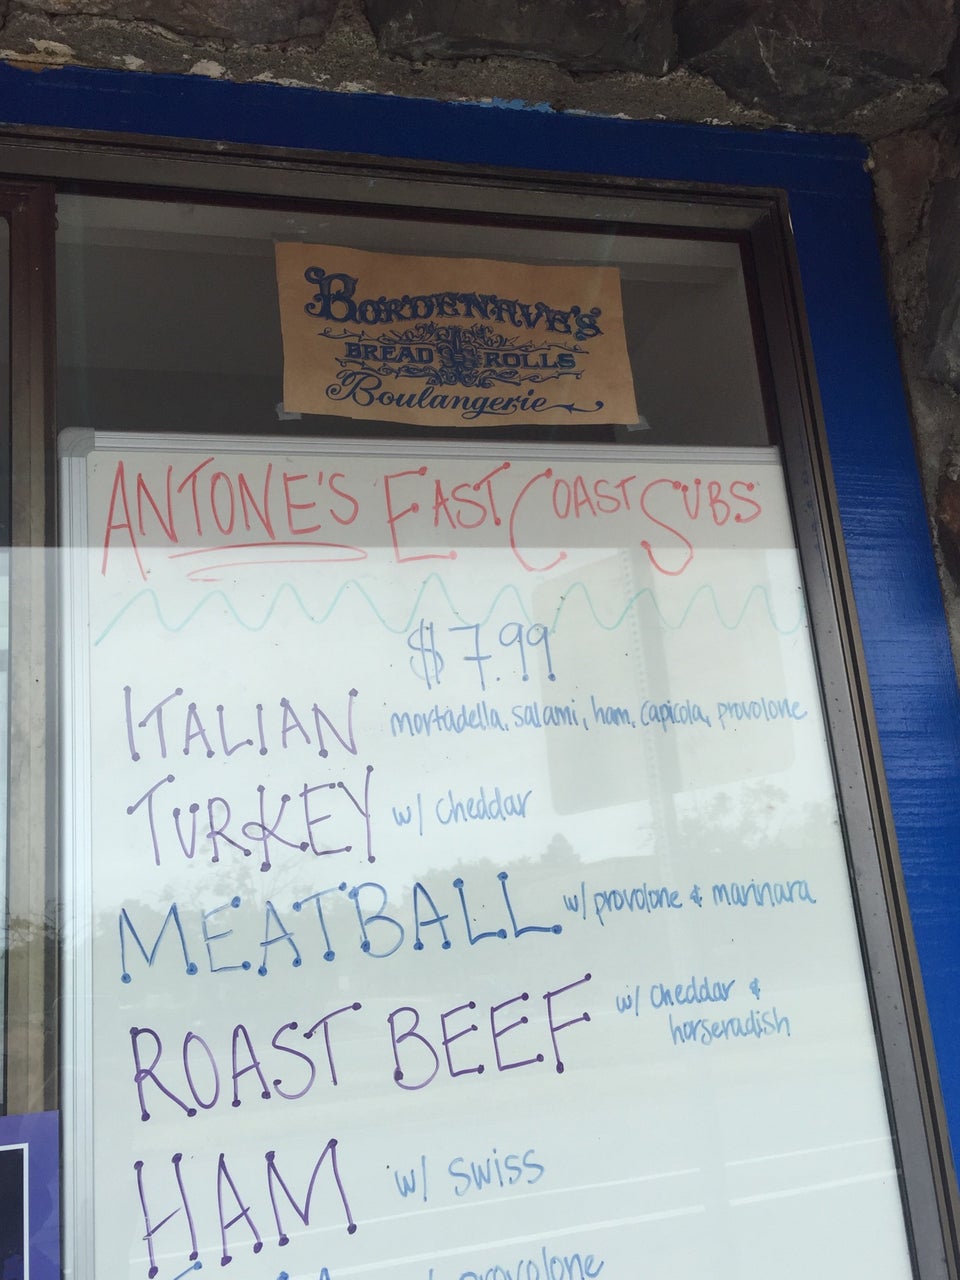 BORDENAVE'S
BREAD ROLLS
Boulangerie
ANTONE'S EAST COAST SUBS
$7.99
ITALIAN mortadella, salami, ham, capicola, provolone
TURKEY w/ cheddar
MEATBALL w/ provolone & marinara
ROAST BEEF w/ cheddar &
horseradish
HAM w/ swiss
provolone